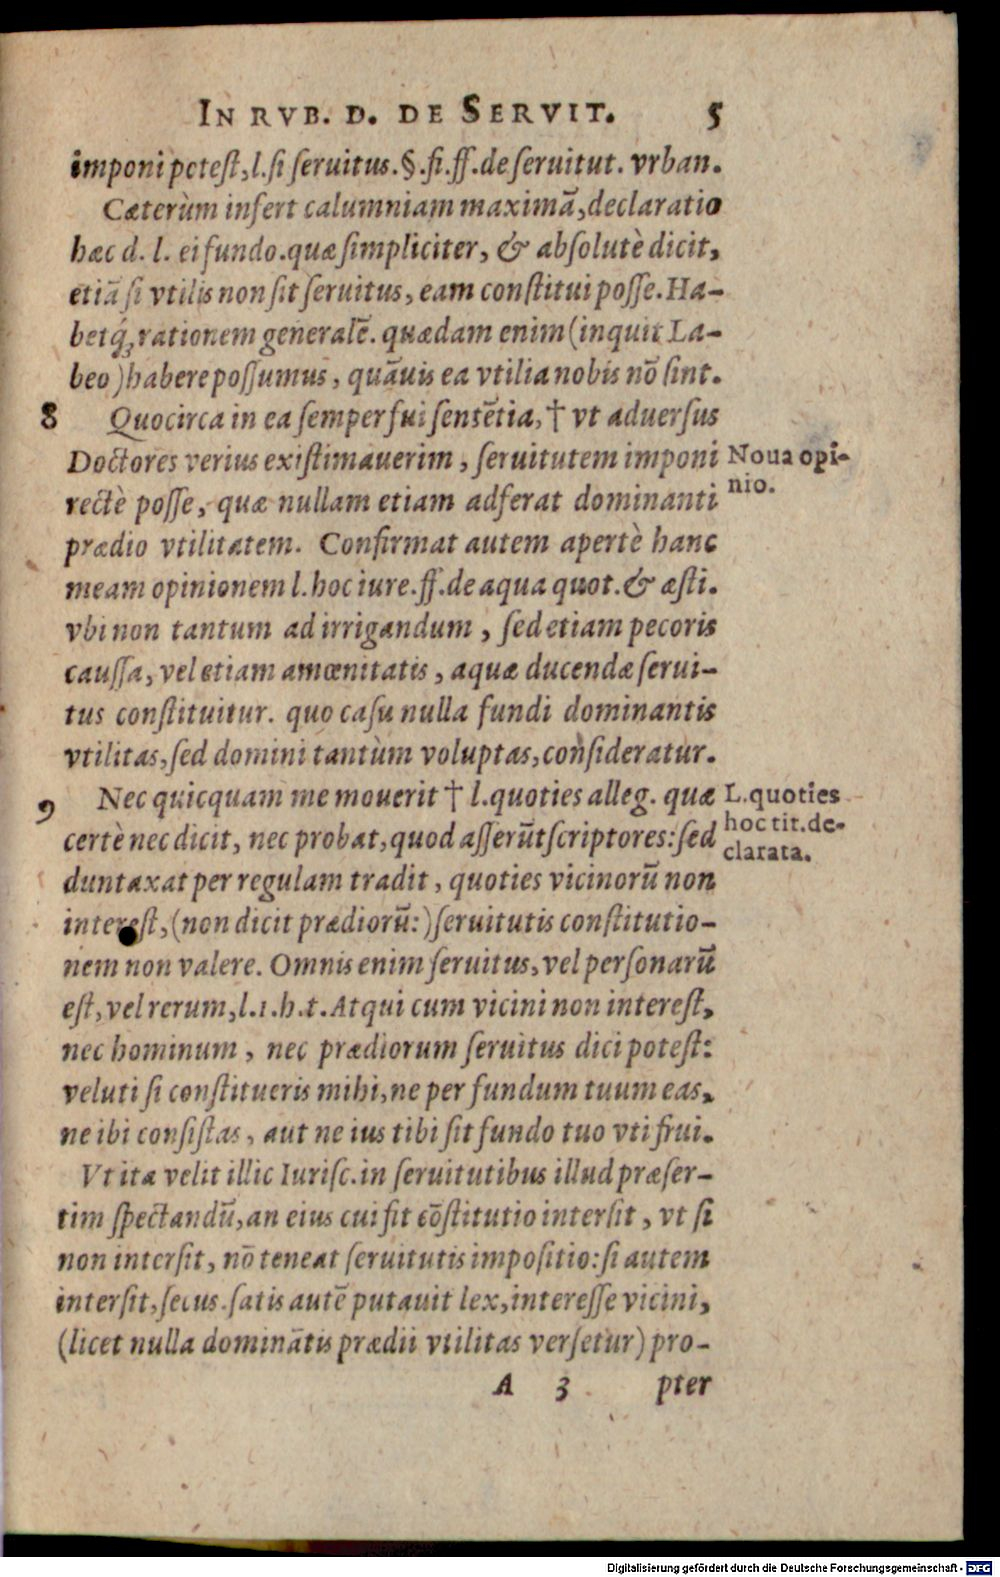 IN RVB. D. DE SERVIT. 5
imponi potest, l. si seruitus. §. fi. ff. de seruitut. vrban.
Cæterùm infert calumniam maximā, declaratio
hæc d. l. ei fundo. quæ simpliciter, & absolutè dicit,
etiā si vtilis non sit seruitus, eam constitui posse. Ha-
betq́; rationem generalē. quædam enim (inquit La-
beo) habere possumus, quāuis ea vtilia nobis nō sint.
8 Quocirca in ea semper fui sentētia, † vt aduersus
Doctores verius existimauerim, seruitutem imponi
Noua opi-
rectè posse, quæ nullam etiam adferat dominanti
nio.
prædio vtilitatem. Confirmat autem apertè hanc
meam opinionem l. hoc iure. ff. de aqua quot. & æsti.
vbi non tantum ad irrigandum, sed etiam pecoris
caussa, vel etiam amœnitatis, aquæ ducendæ serui-
tus constituitur. quo casu nulla fundi dominantis
vtilitas, sed domini tantùm voluptas, consideratur.
9 Nec quicquam me mouerit † l. quoties alleg. quæ
L. quoties
certè nec dicit, nec probat, quod asserūt scriptores: sed
hoc tit. de-
clarata.
duntaxat per regulam tradit, quoties vicinorū non
interest, (non dicit prædiorū:) seruitutis constitutio-
nem non valere. Omnis enim seruitus, vel personarū
est, vel rerum, l. 1. h. t. Atqui cum vicini non interest,
nec hominum, nec prædiorum seruitus dici potest:
veluti si constitueris mihi, ne per fundum tuum eas,
ne ibi consistas, aut ne ius tibi sit fundo tuo vti frui.
Vt ita velit illic Iurisc. in seruitutibus illud præser-
tim spectandū, an eius cui fit cōstitutio intersit, vt si
non intersit, nō teneat seruitutis impositio: si autem
intersit, secus. satis autē putauit lex, interesse vicini,
(licet nulla dominātis prædii vtilitas versetur) pro-
A 3 pter
Digitalisierung gefördert durch die Deutsche Forschungsgemeinschaft - DFG